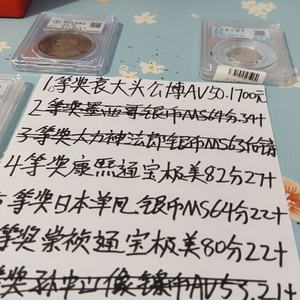 1等奖袁大头公博AV50.1700元
2等奖墨西哥银币MS64分34十
3等奖大力神法郎银币MS63
4等奖康熙通宝极美82分27十
等奖日本单凡银币MS64分22十
等奖崇祯通宝极美80分22十
奖孙中山像镍币AV53.21十